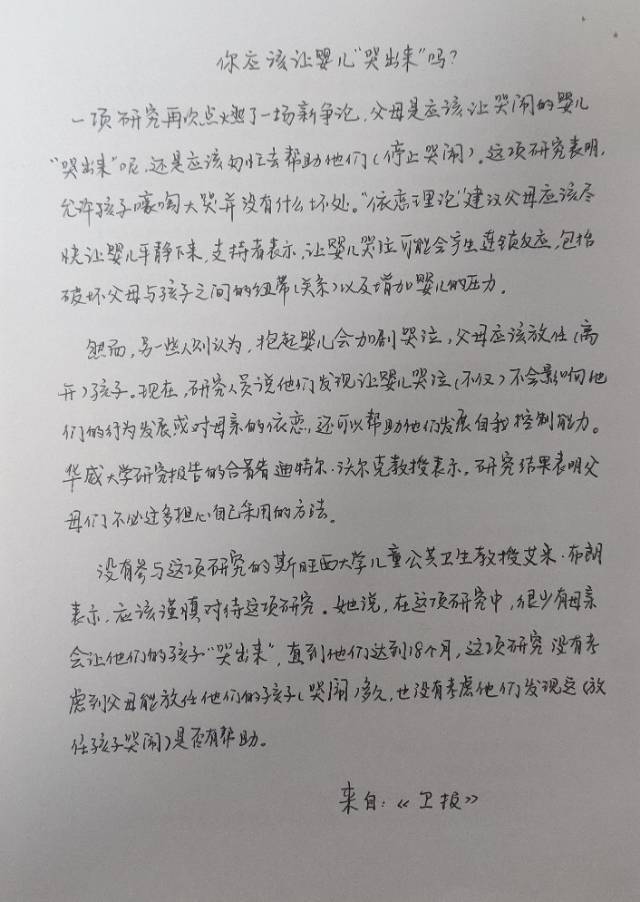 你应该让婴儿“哭出来”吗?
一项研究再次点燃了一场新争论,父母是应该让哭闹的婴儿
“哭出来”呢,还是应该匆忙去帮助他们(停止哭闹)。这项研究表明,
允许孩子嚎啕大哭并没有什么坏处。“依恋理论”建议父母应该尽
快让婴儿平静下来,支持者表示,让婴儿哭泣可能会产生连锁反应,包括
破坏父母与孩子之间的纽带(关系)以及增加婴儿的压力。
然而,另一些人则认为,抱起婴儿会加剧哭泣,父母应该放任(离
开)孩子。现在,研究人员说他们发现让婴儿哭泣(不仅)不会影响他
们的行为发展或对母亲的依恋,还可以帮助他们发展自我控制能力。
华威大学研究报告的合著者迪特尔·沃尔克教授表示,研究结果表明父
母们不必过多担心自己采用的方法。
没有参与这项研究的斯旺西大学儿童公共卫生教授艾米·布朗
表示,应该谨慎对待这项研究。她说,在这项研究中,很少有母亲
会让他们的孩子“哭出来”,直到他们达到18个月,这项研究没有考
虑到父母能放任他们的孩子(哭闹)多久,也没有考虑他们发现这(放
任孩子哭闹)是否有帮助。
来自:《卫报》